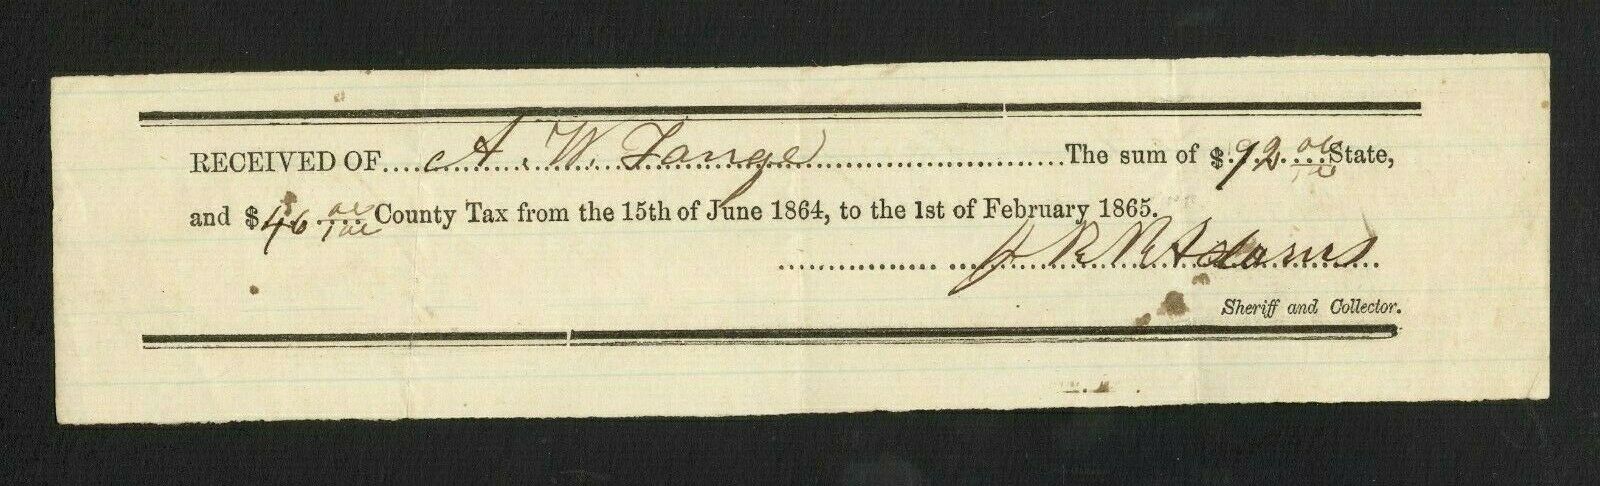 RECEIVED OF A. W. Lange The sum of $92 00/100 State,
and $46 00/100 County Tax from the 15th of June 1864, to the 1st of February 1865.
J R R Adams
Sheriff and Collector.